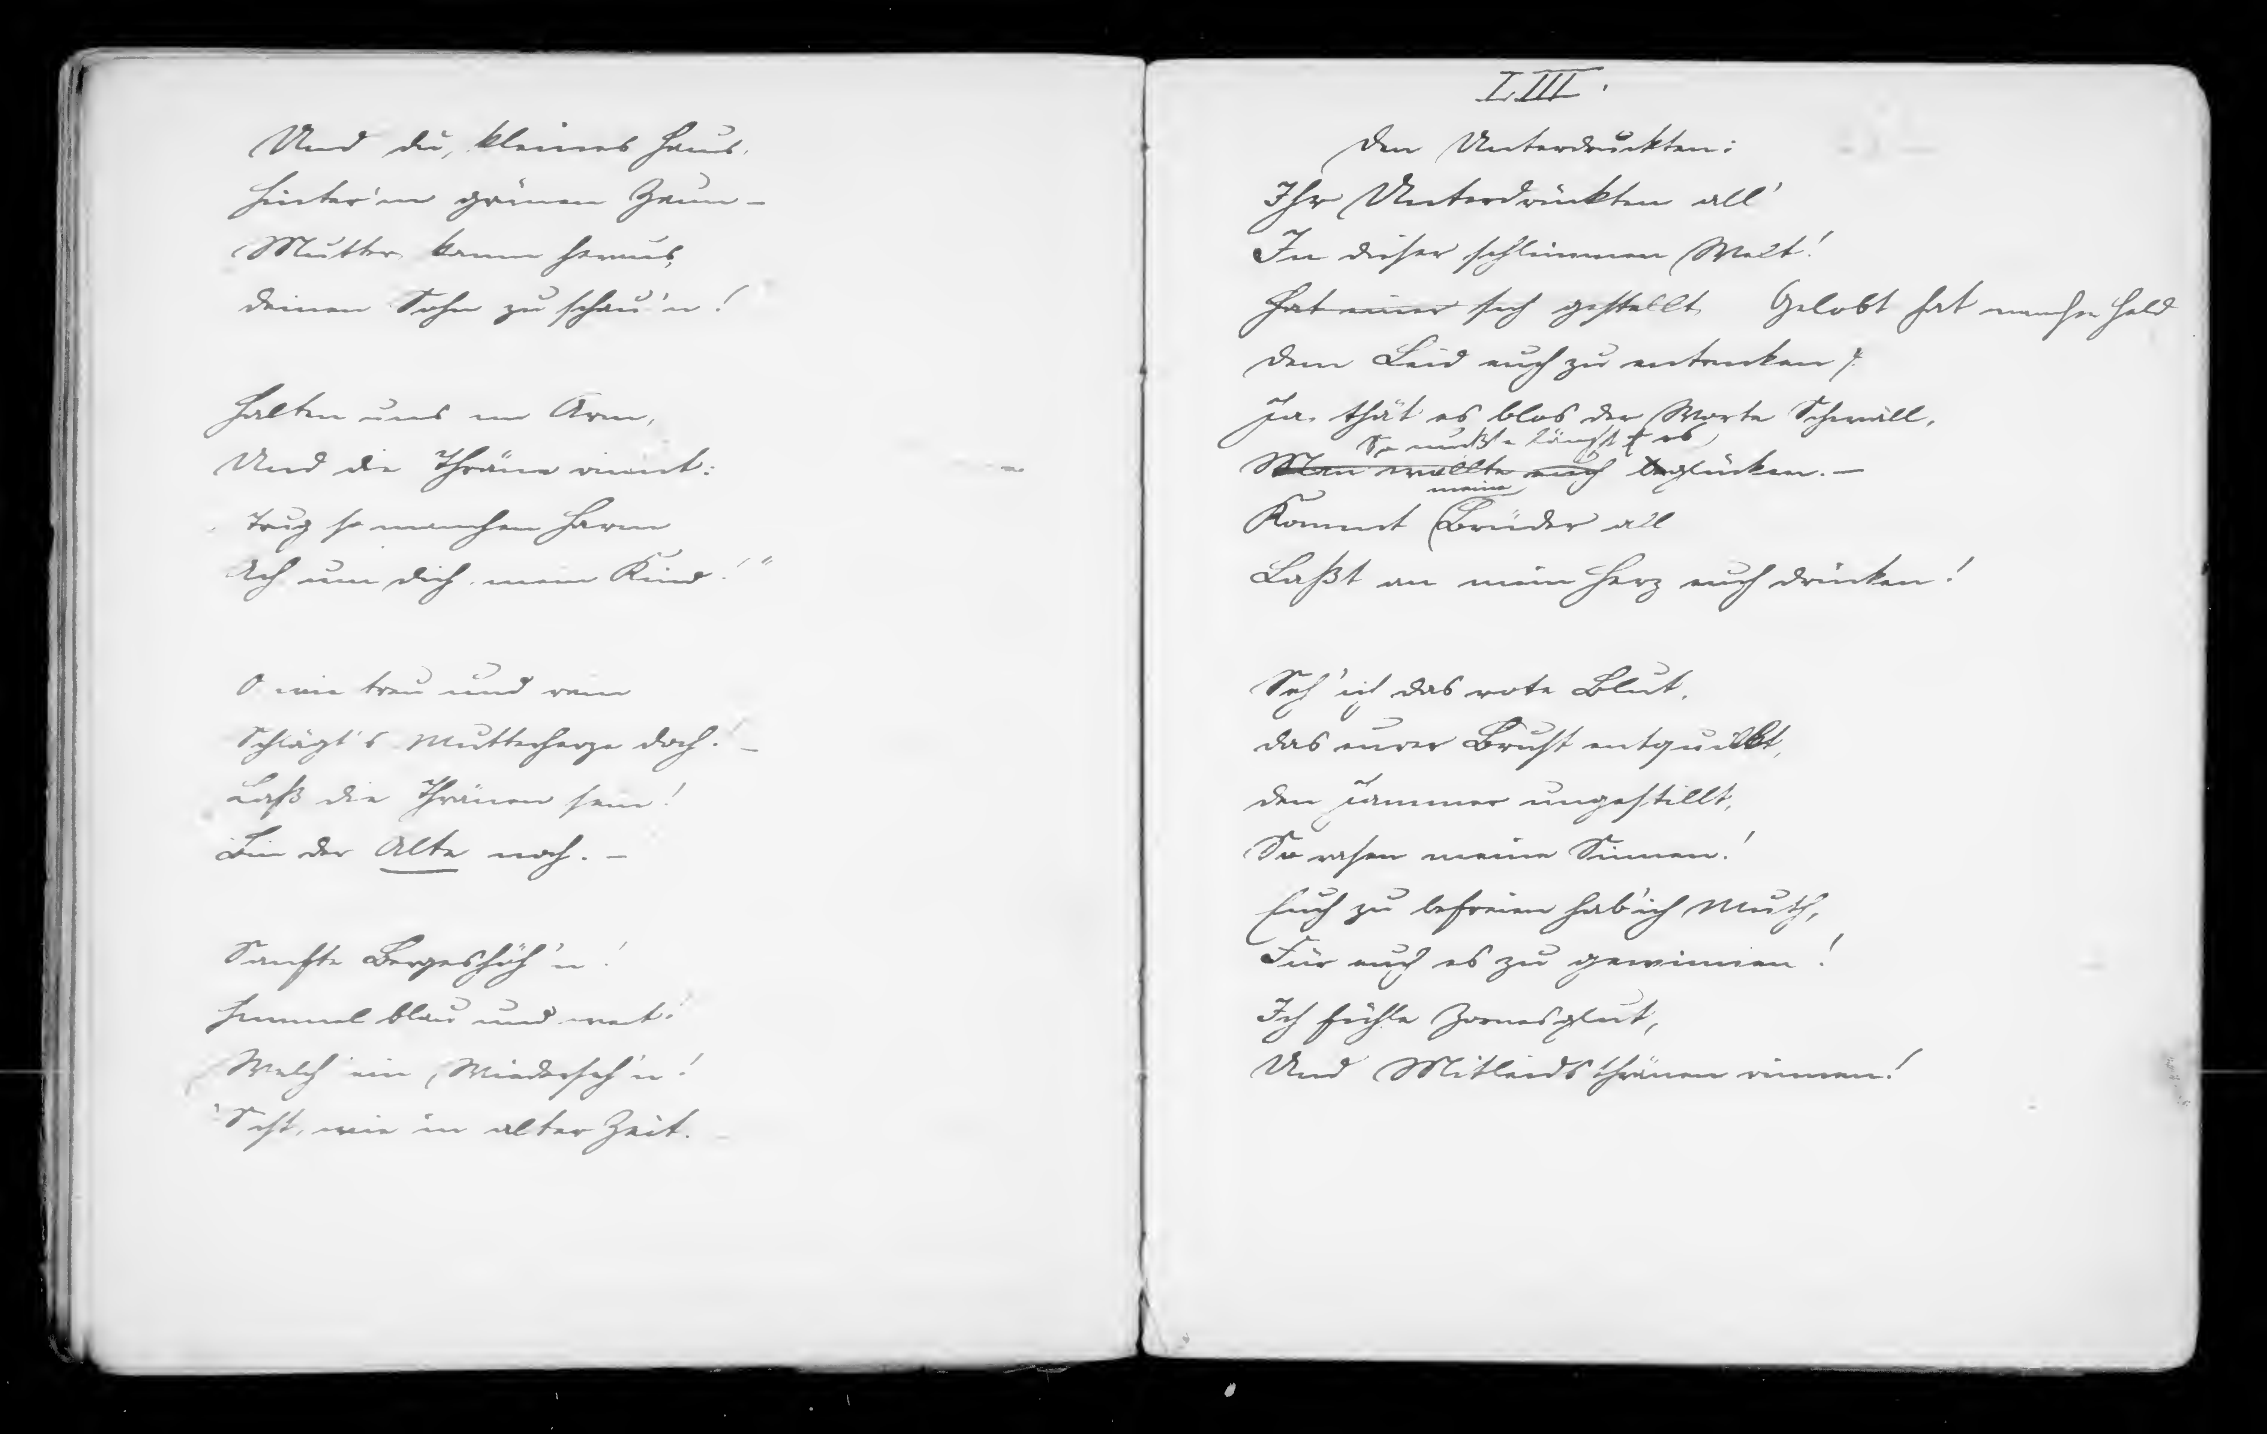 Und du, kleines Haus,
Hinter'm grünen Zaun –
Mutter kamm heraus,
Deinen Sohn zu schau'n!
Halten uns im Arm,
Und die Thräne rinnt:
Trug so manchen Harm
Ach um dich, mein Kind!"
O wie treu und rein
Schlägt's Mutterherze doch! –
Laß die Thränen sein!
Bin der Alte noch. –
Sanfte Bergeshöh'n!
Himmel blau und weit!
Welch' ein Wiederseh'n!
Seht, wie in alter Zeit.
LIII.
Den Unterdrückten:
Ihr Unterdrückten all'
In dieser schlimmen Welt!
Hat einer sich gestellt Gelobt hat mancher Held
Dem Leid euch zu entrücken!
Ja, thät es blos der Worte Schwall,
So müßte längst es
Man wollte euch beglücken. –
meine
Kommt Brüder all
Laßt an mein Herz euch drücken!
Seh' ich das rote Blut,
Das eurer Brust entquillt,
Den Jammer ungestillt,
So rasen meine Sinnen!
Euch zu befreien hab' ich Muth,
Für euch es zu gewinnen!
Ich fühle Zornesglut,
Und Mitleidsthränen rinnen!